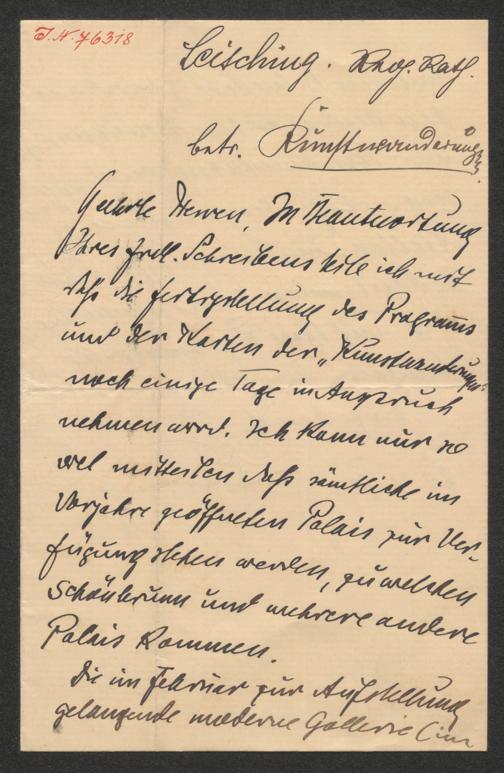 J.N. 76318
Leisching. Reg. Rath.
betr. Kunstwanderung
Geehrte Herren, In Beantwortung
Ihres frdl. Schreibens teile ich mit
daß die Fertigstellung des Programs
und der Karten der „Kunstwanderungen“
noch einige Tage in Anspruch
nehmen wird. Ich kann nur so
viel mitteilen daß sämtliche im
Vorjahre geöffneten Palais zur Ver-
fügung stehen werden, zu welchen
Schönbrunn und mehrere andere
Palais kommen.
Die im Februar zur Aufstellung
gelangende moderne Gallerie (im